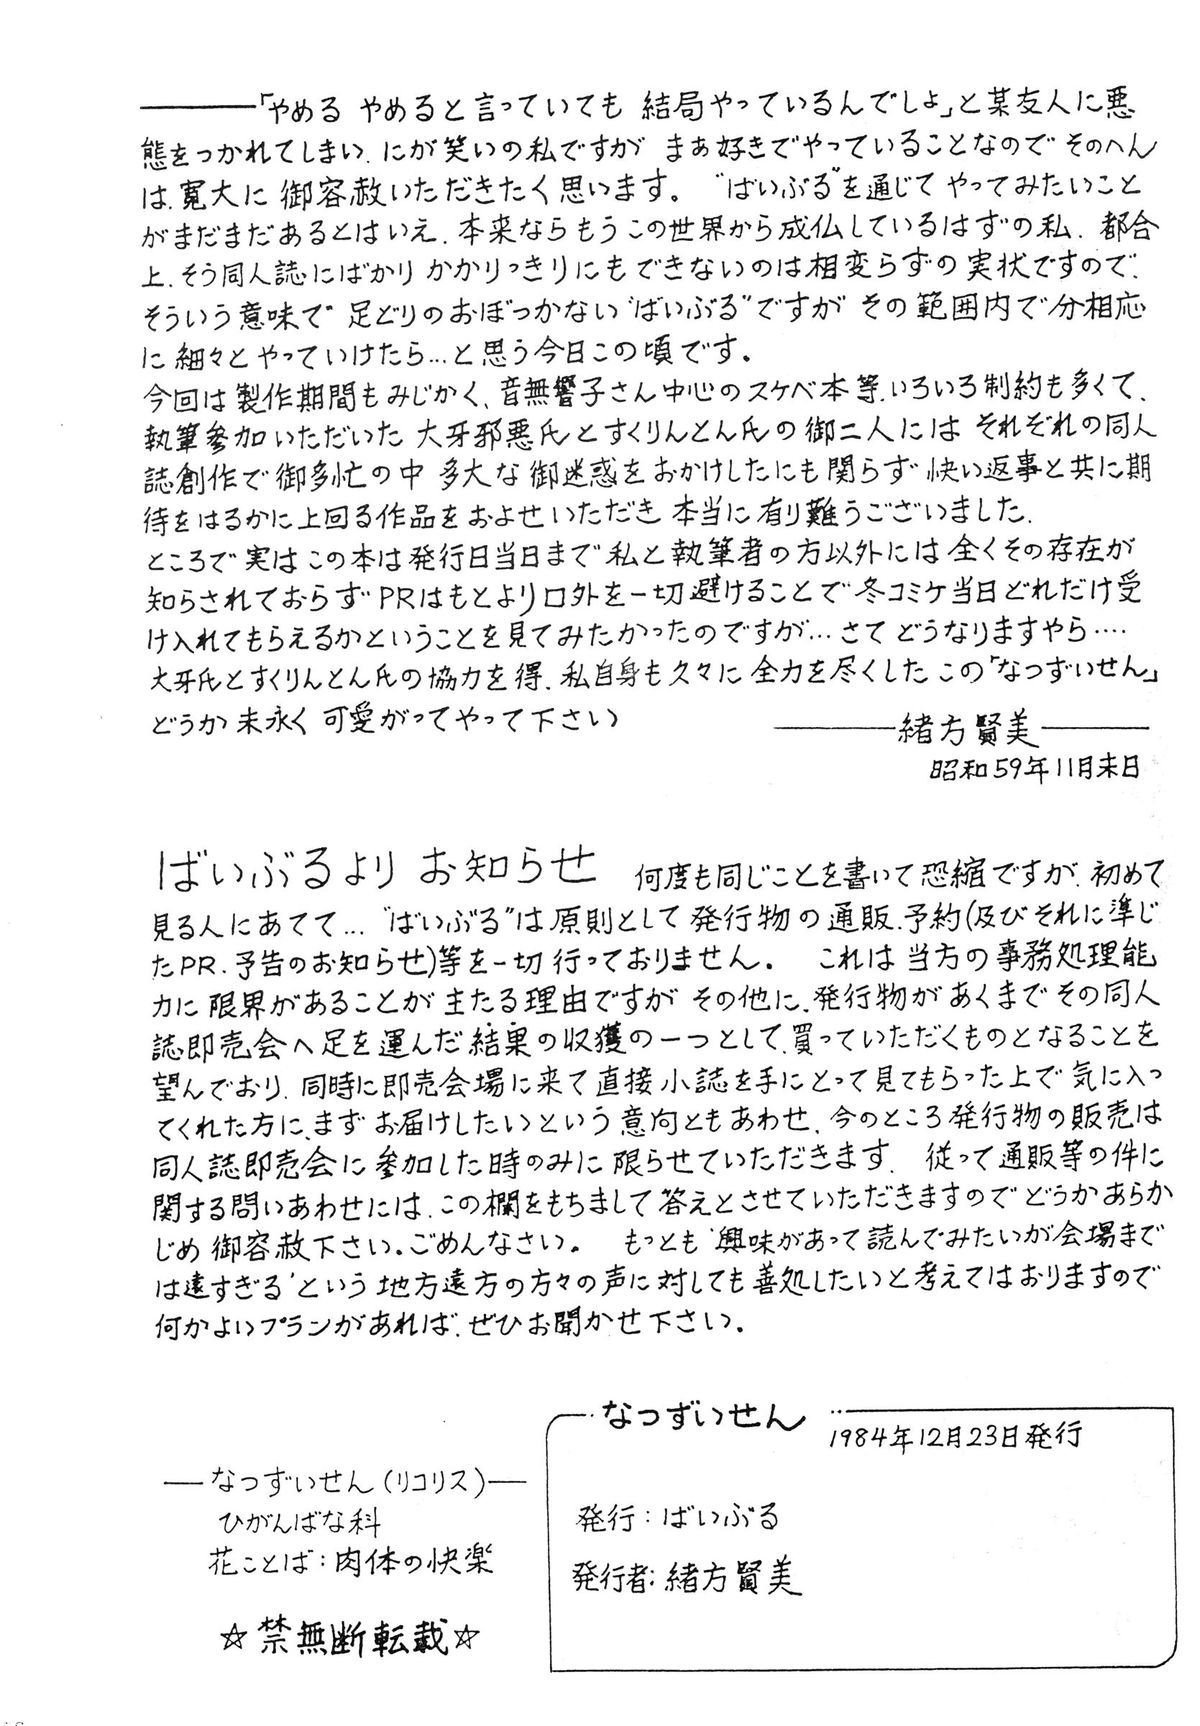 「やめる やめると言っていても 結局やっているんでしょ」と某友人に悪
態をつかれてしまい、にが笑いの私ですが まぁ好きでやっていることなので そのへん
は、寛大に 御容赦いただきたく思います。 “ばいぶる”を通じて やってみたいこと
がまだまだあるとはいえ、本来ならもうこの世界から成仏しているはずの私、都合
上、そう同人誌にばかり かかりっきりにもできないのは相変らずの実状ですので、
そういう意味で 足どりのおぼつかない“ばいぶる”ですが その範囲内で分相応
に細々とやっていけたら…と思う今日この頃です。
今回は製作期間もみじかく、音無響子さん中心のスケベ本等、いろいろ制約も多くて、
執筆参加いただいた 大牙邪悪氏とすくりんとん氏の御二人には それぞれの同人
誌創作で御多忙の中 多大な御迷惑をおかけしたにも関らず 快い返事と共に期
待をはるかに上回る作品をおよせいただき 本当に有り難うございました。
ところで実はこの本は発行日当日まで私と執筆者の方以外には全くその存在が
知らされておらず PRはもとより口外を一切避けることで冬コミケ当日どれだけ受
け入れてもらえるかということを見てみたかったのですが…さてどうなりますやら‥‥
大牙氏とすくりんとん氏の協力を得、私自身も久々に全力を尽くしたこの「なつずいせん」
どうか末永く可愛がってやって下さい
緒方賢美
昭和59年11月末日
ばいぶるより お知らせ 何度も同じことを書いて恐縮ですが、初めて
見る人にあてて… “ばいぶる”は原則として発行物の通販、予約(及びそれに準じ
たPR、予告のお知らせ)等を一切行っておりません。 これは当方の事務処理能
力に限界があることが主たる理由ですが その他に、発行物があくまでその同人
誌即売会へ足を運んだ結果の収獲の一つとして、買っていただくものとなることを
望んでおり、同時に即売会場に来て直接小誌を手にとって見てもらった上で気に入っ
てくれた方に、まずお届けしたいという意向ともあわせ、今のところ発行物の販売は
同人誌即売会に参加した時のみに限らせていただきます。 従って通販等の件に
関する問いあわせには、この欄をもちまして答えとさせていただきますのでどうかあらか
じめ御容赦下さい。ごめんなさい。 もっとも‘興味があって読んでみたいが会場まで
は遠すぎる’という地方遠方の方々の声に対しても善処したいと考えてはおりますので
何かよいプランがあれば、ぜひお聞かせ下さい。
なつずいせん
1984年12月23日発行
発行:ばいぶる
発行者:緒方賢美
なつずいせん(リコリス)
ひがんばな科
花ことば:肉体の快楽
☆禁無断転載☆